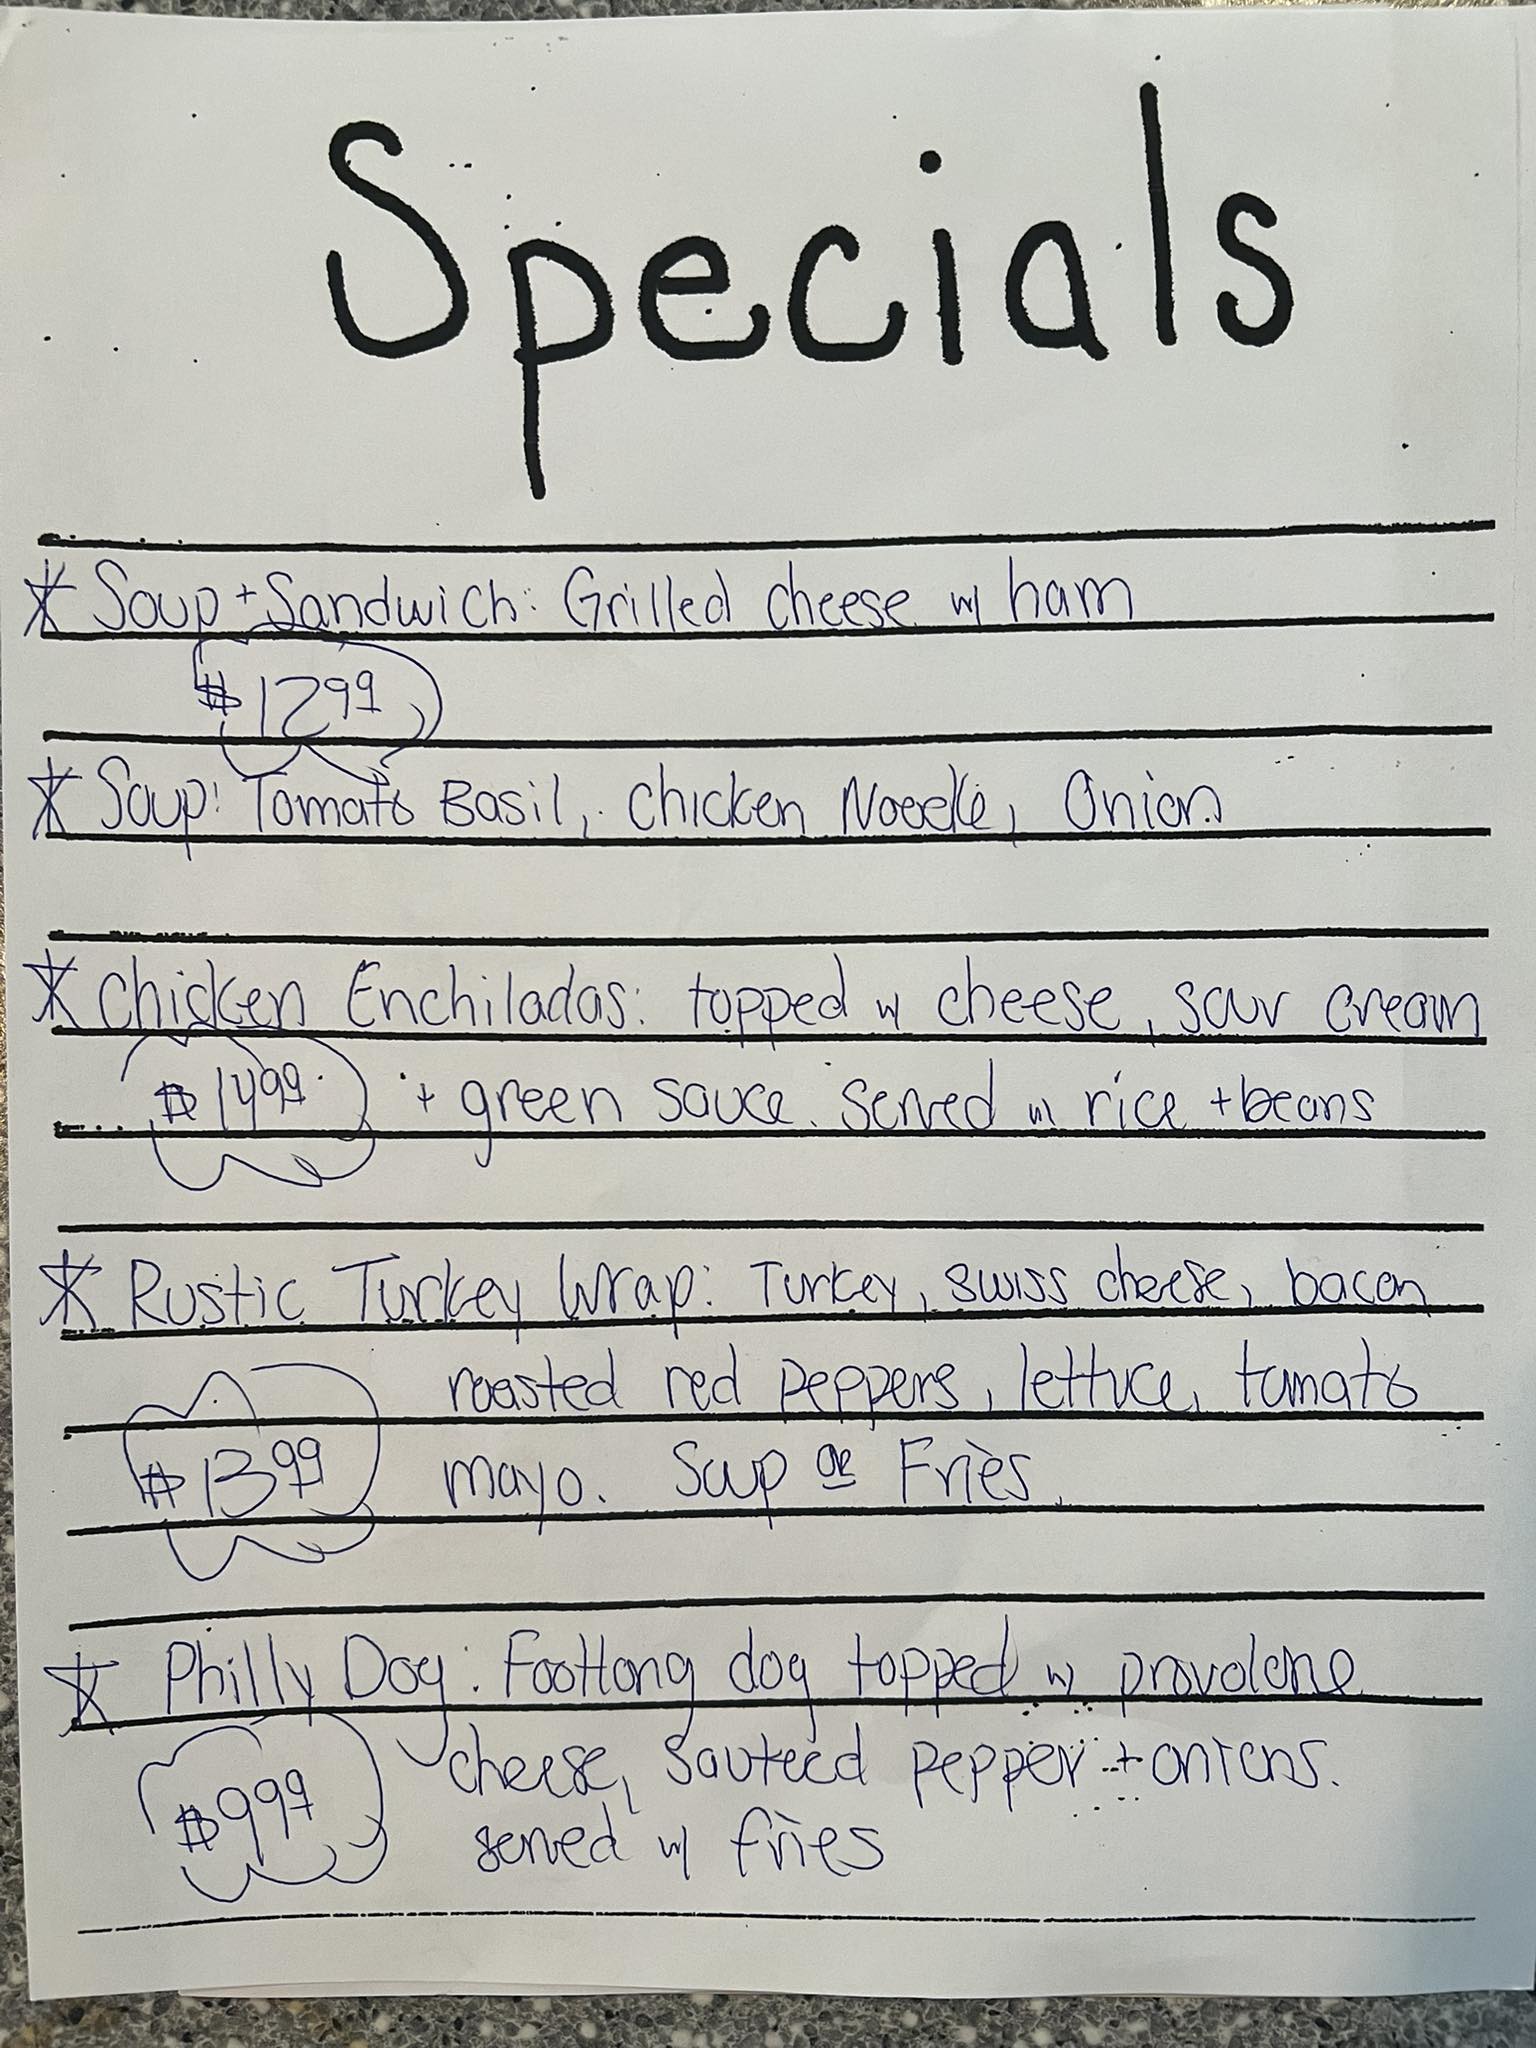 Specials
* Soup + Sandwich: Grilled cheese w/ ham
$12.99
* Soup: Tomato Basil, Chicken Noodle, Onion
* Chicken Enchiladas: topped w/ cheese, sour cream
$14.99 + green sauce. Served w/ rice + beans
* Rustic Turkey Wrap: Turkey, swiss cheese, bacon
roasted red peppers, lettuce, tomato
$13.99 mayo. Soup or Fries.
* Philly Dog: Footlong dog topped w/ provolone
cheese, sauteed pepper + onions.
$9.99 served w/ fries